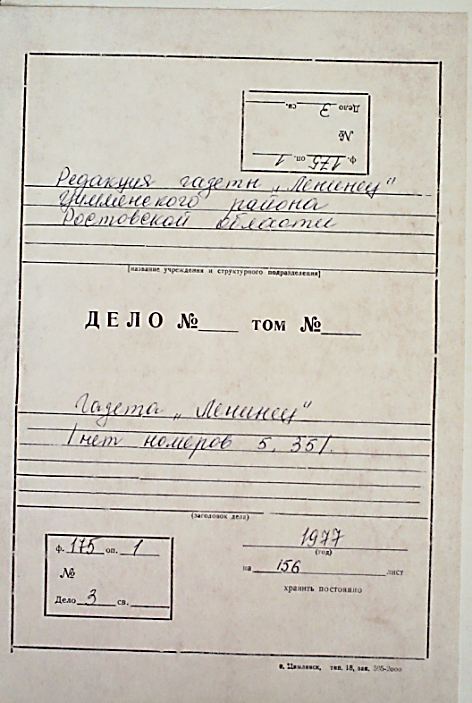 ф. 175 оп. 1
№
Дело 3 св.
Редакция газеты „Ленинец"
Цимлянского района
Ростовской области
[название учреждения и структурного подразделения]
ДЕЛО № ТОМ №
Газета „Ленинец"
/нет номеров 5, 35/.
(заголовок дела)
ф. 175 оп. 1
№
Дело 3 св.
1977
(год)
на 156 лист
хранить постоянно
г. Цимлянск, тип. 18, зак.